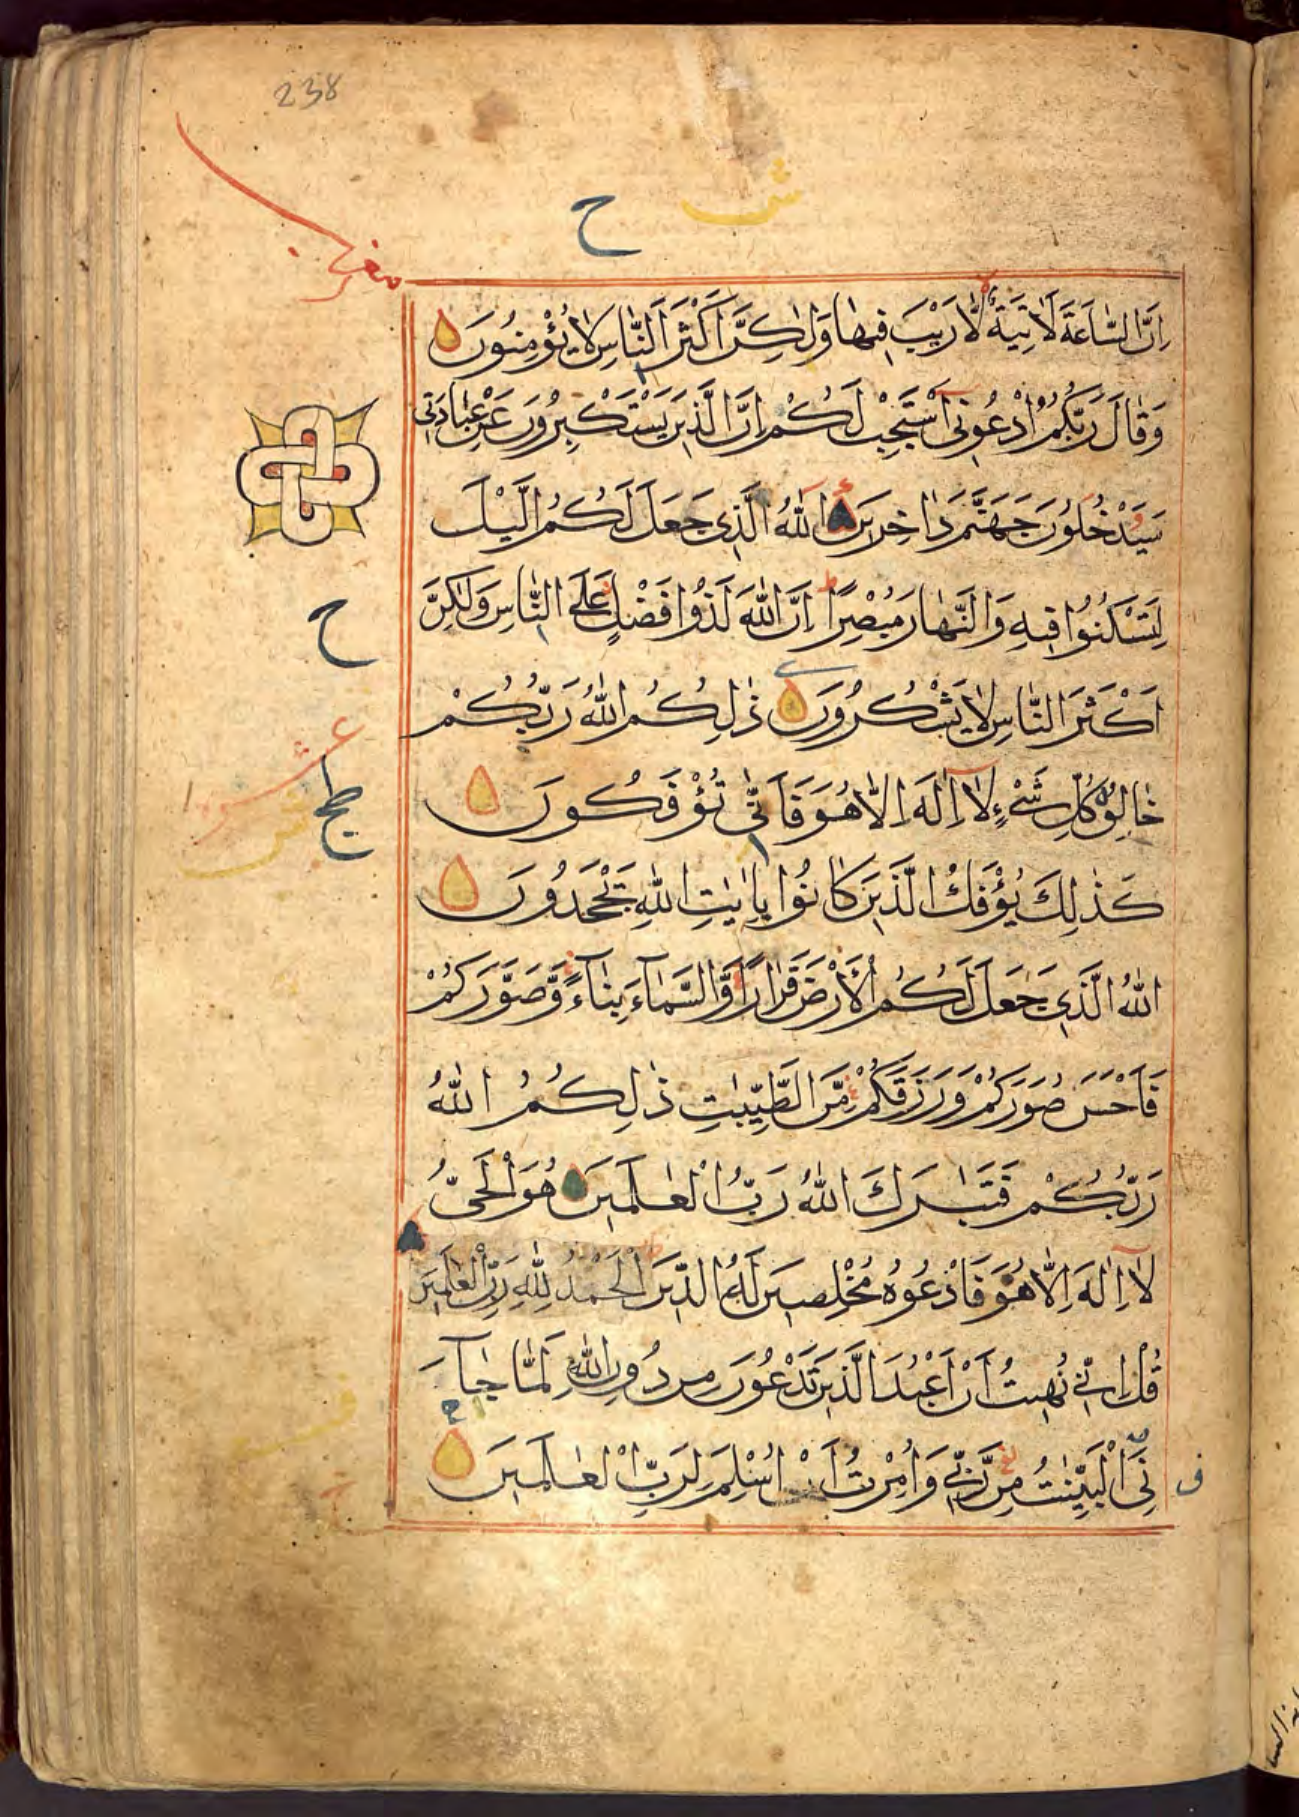 238
ح
اِنَّ السَّاعَةَ لَاٰتِيَةٌ لَّا رَيْبَ فِيهَا وَلٰكِنَّ اَكْثَرَ النَّاسِ لَا يُؤْمِنُونَ
وَقَالَ رَبُّكُمُ ادْعُونِي اَسْتَجِبْ لَكُمْ اِنَّ الَّذِينَ يَسْتَكْبِرُونَ عَنْ عِبَادَتِي
سَيَدْخُلُونَ جَهَنَّمَ دَاخِرِينَ اللّٰهُ الَّذِي جَعَلَ لَكُمُ الَّيْلَ
لِتَسْكُنُوا فِيهِ وَالنَّهَارَ مُبْصِرًا اِنَّ اللّٰهَ لَذُوا فَضْلٍ عَلَى النَّاسِ وَلٰكِنَّ
ح
اَكْثَرَ النَّاسِ لَا يَشْكُرُونَ ذٰلِكُمُ اللّٰهُ رَبُّكُمْ
خَالِقُ كُلِّ شَيْءٍ لَا اِلٰهَ اِلَّا هُوَ فَاَنّٰى تُؤْفَكُونَ
كَذٰلِكَ يُؤْفَكُ الَّذِينَ كَانُوا بِاٰيٰتِ اللّٰهِ يَجْحَدُونَ
اللّٰهُ الَّذِي جَعَلَ لَكُمُ الْاَرْضَ قَرَارًا وَّالسَّمَاءَ بِنَاءً وَّصَوَّرَكُمْ
فَاَحْسَنَ صُوَرَكُمْ وَرَزَقَكُمْ مِّنَ الطَّيِّبٰتِ ذٰلِكُمُ اللّٰهُ
رَبُّكُمْ فَتَبٰرَكَ اللّٰهُ رَبُّ الْعٰلَمِينَ هُوَ الْحَيُّ
لَا اِلٰهَ اِلَّا هُوَ فَادْعُوهُ مُخْلِصِينَ لَهُ الدِّينَ الْحَمْدُ لِلّٰهِ رَبِّ الْعٰلَمِينَ
قُلْ اِنِّي نُهِيتُ اَنْ اَعْبُدَ الَّذِينَ تَدْعُونَ مِنْ دُونِ اللّٰهِ لَمَّا جَآءَ
نِيَ الْبَيِّنٰتُ مِنْ رَّبِّي وَاُمِرْتُ اَنْ اُسْلِمَ لِرَبِّ الْعٰلَمِينَ